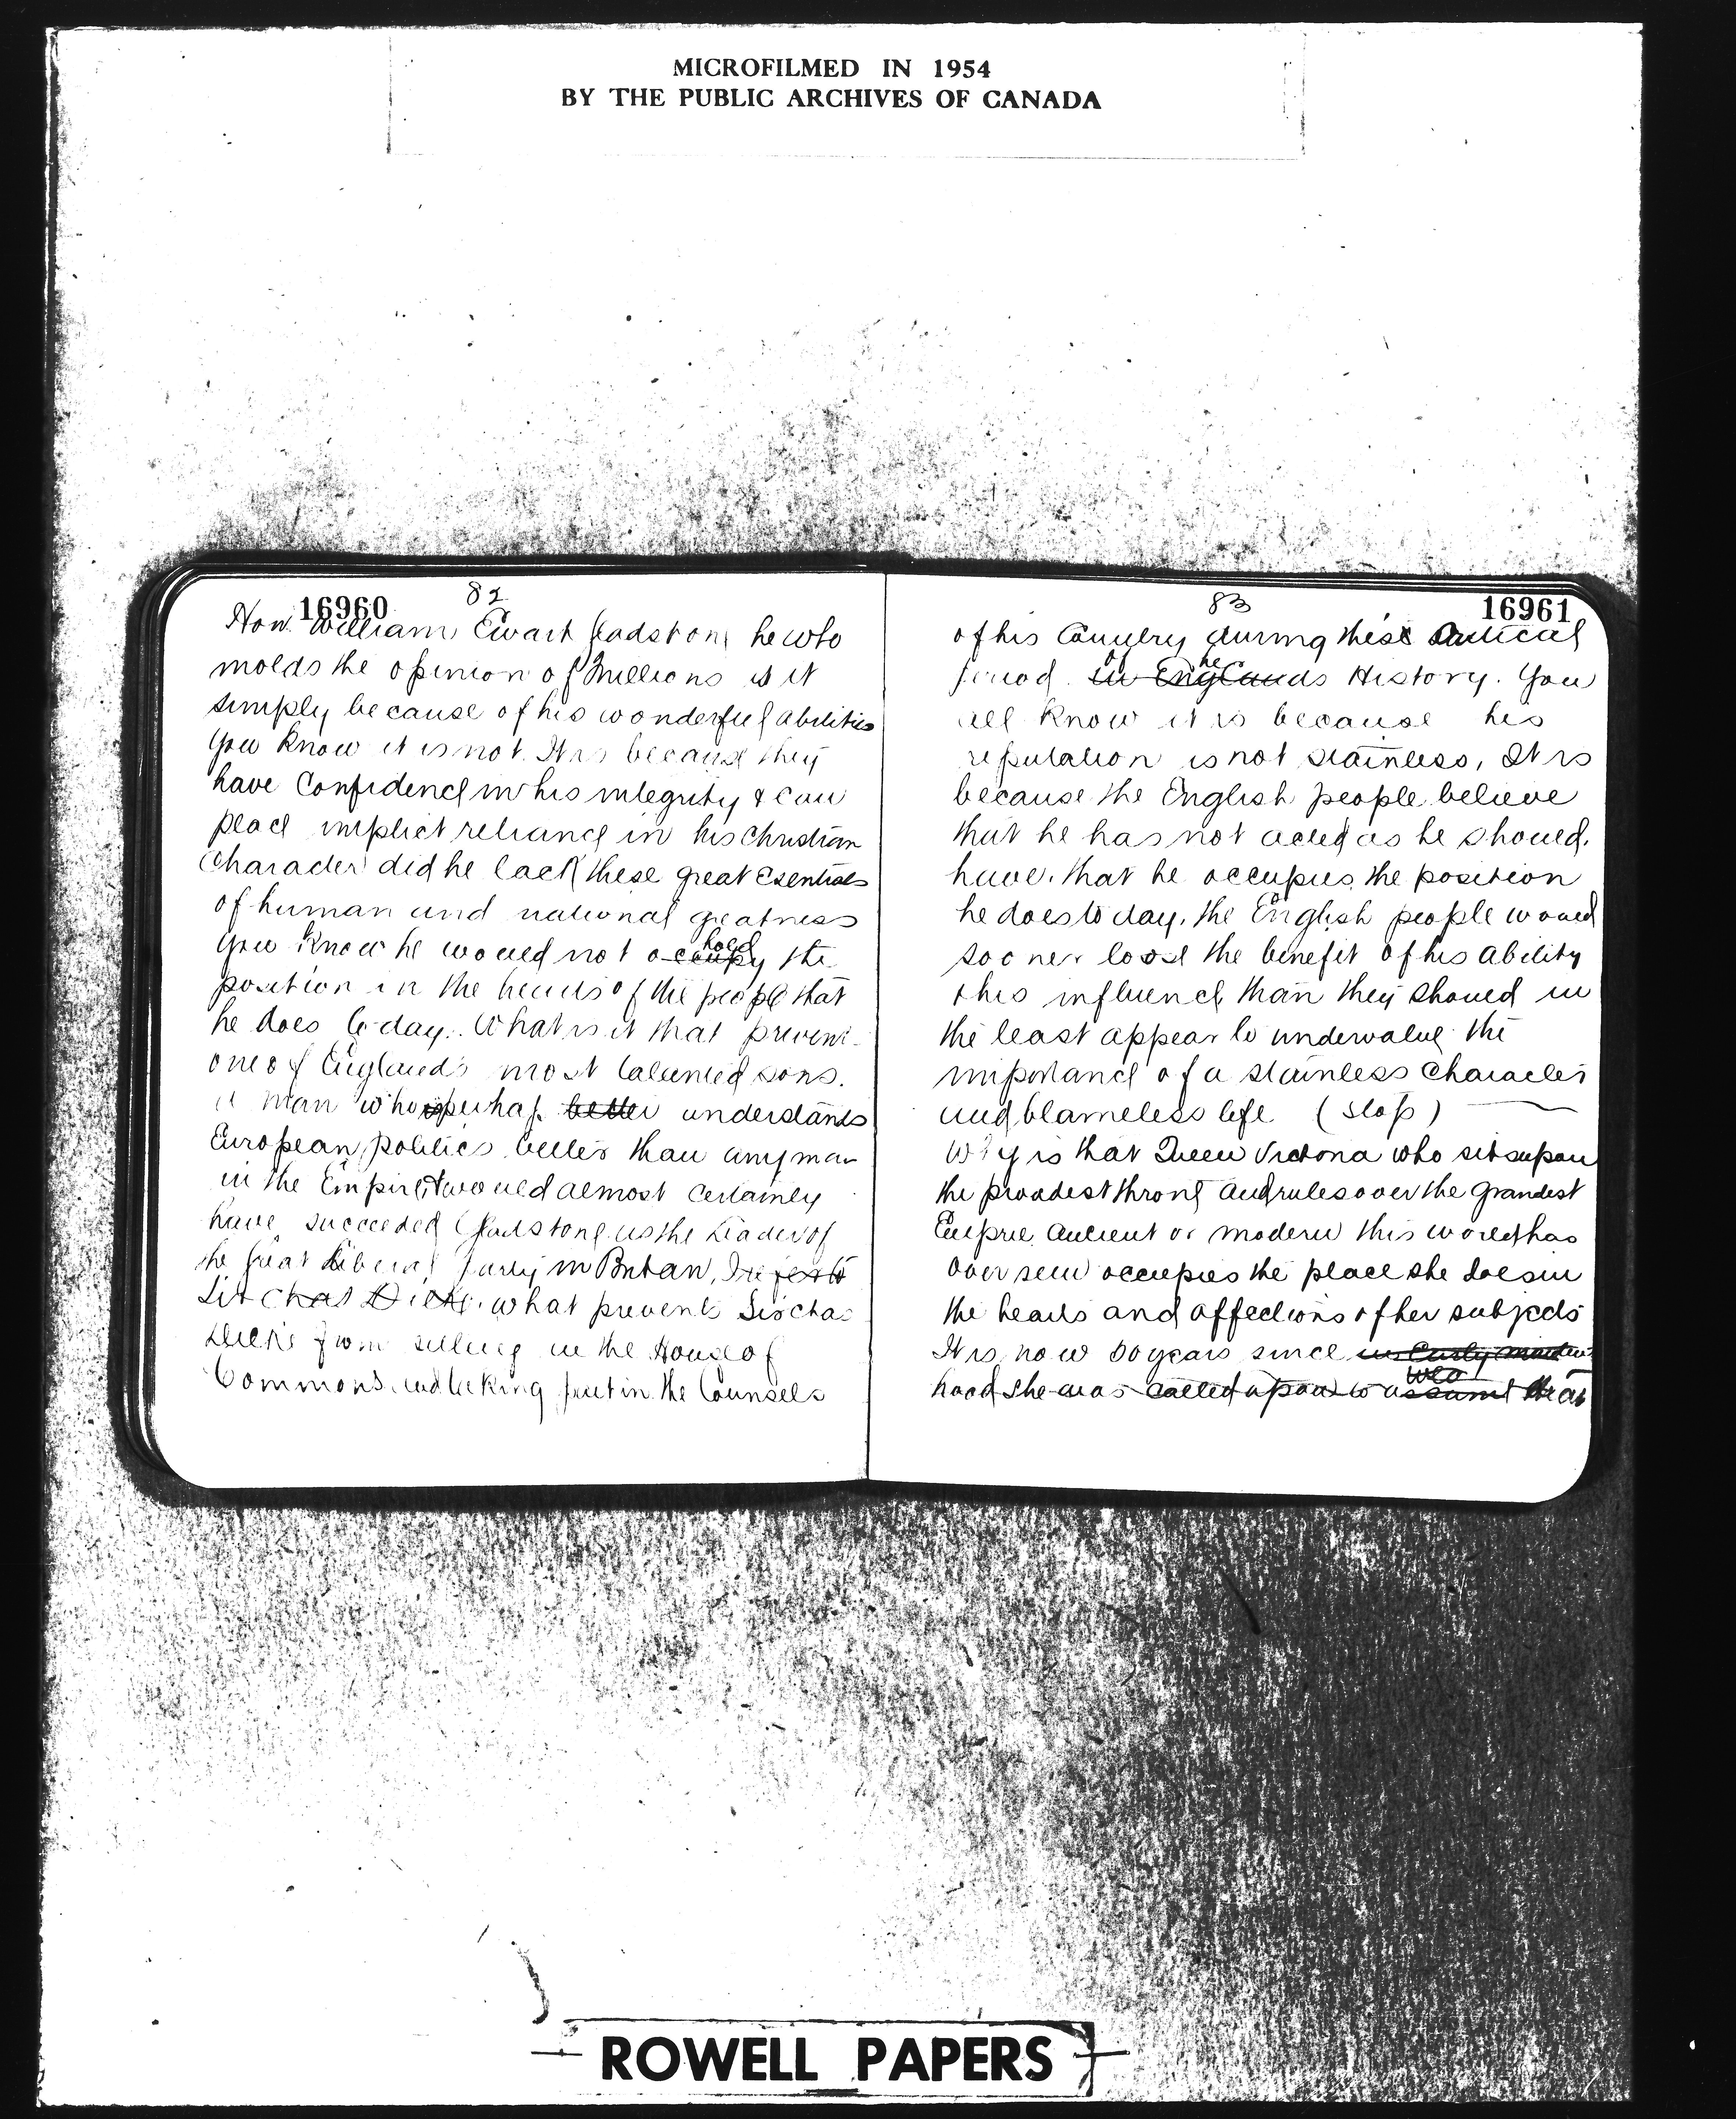 MICROFILMED IN 1954
BY THE PUBLIC ARCHIVES OF CANADA
82
16960
Hon. William Ewart Gladstone he who
molds the opinion of Millions is it
simply because of his wonderful abilities
You know it is not. It is because they
have Confidence in his integrity & can
place implict reliance in his Christian
Character did he lack these great esentials
of human and national greatness
hold
You know he would not occupy the
position in the hearts of the people that
he does to-day. What is it that prevents
one of England's most talented sons.
a man who perhaps better understands
European politics better than any man
in the Empire & would almost certainly
have succeeded Gladstone as the Leader of
the great Liberal party in Britan, I refer to
Sir Chas Dilke. what prevents Sir Chas
Dilke from sitting in the House of
Commons and taking part in the Counsels
83
16961
of his Country during these Critical
of the
period in Englands History. You
all know it is because his
reputation is not stainless, It is
because the English people believe
that he has not acted as he should.
have. that he occupies the position
he does to day. the English people would
sooner loose the benefit of his ability
& his influence than they should in
the least appear to undervalue the
importance of a stainless Character
and blameless life (Stop)
Why is that Queen Victoria who sits upon
the proudest throne and rules over the grandest
Empire Ancient or modern this world has
over seen occupies the place she does in
the hearts and affections of her subjects
It is now 50 years since in Early maiden
hood she was called upon to assume the
ROWELL PAPERS